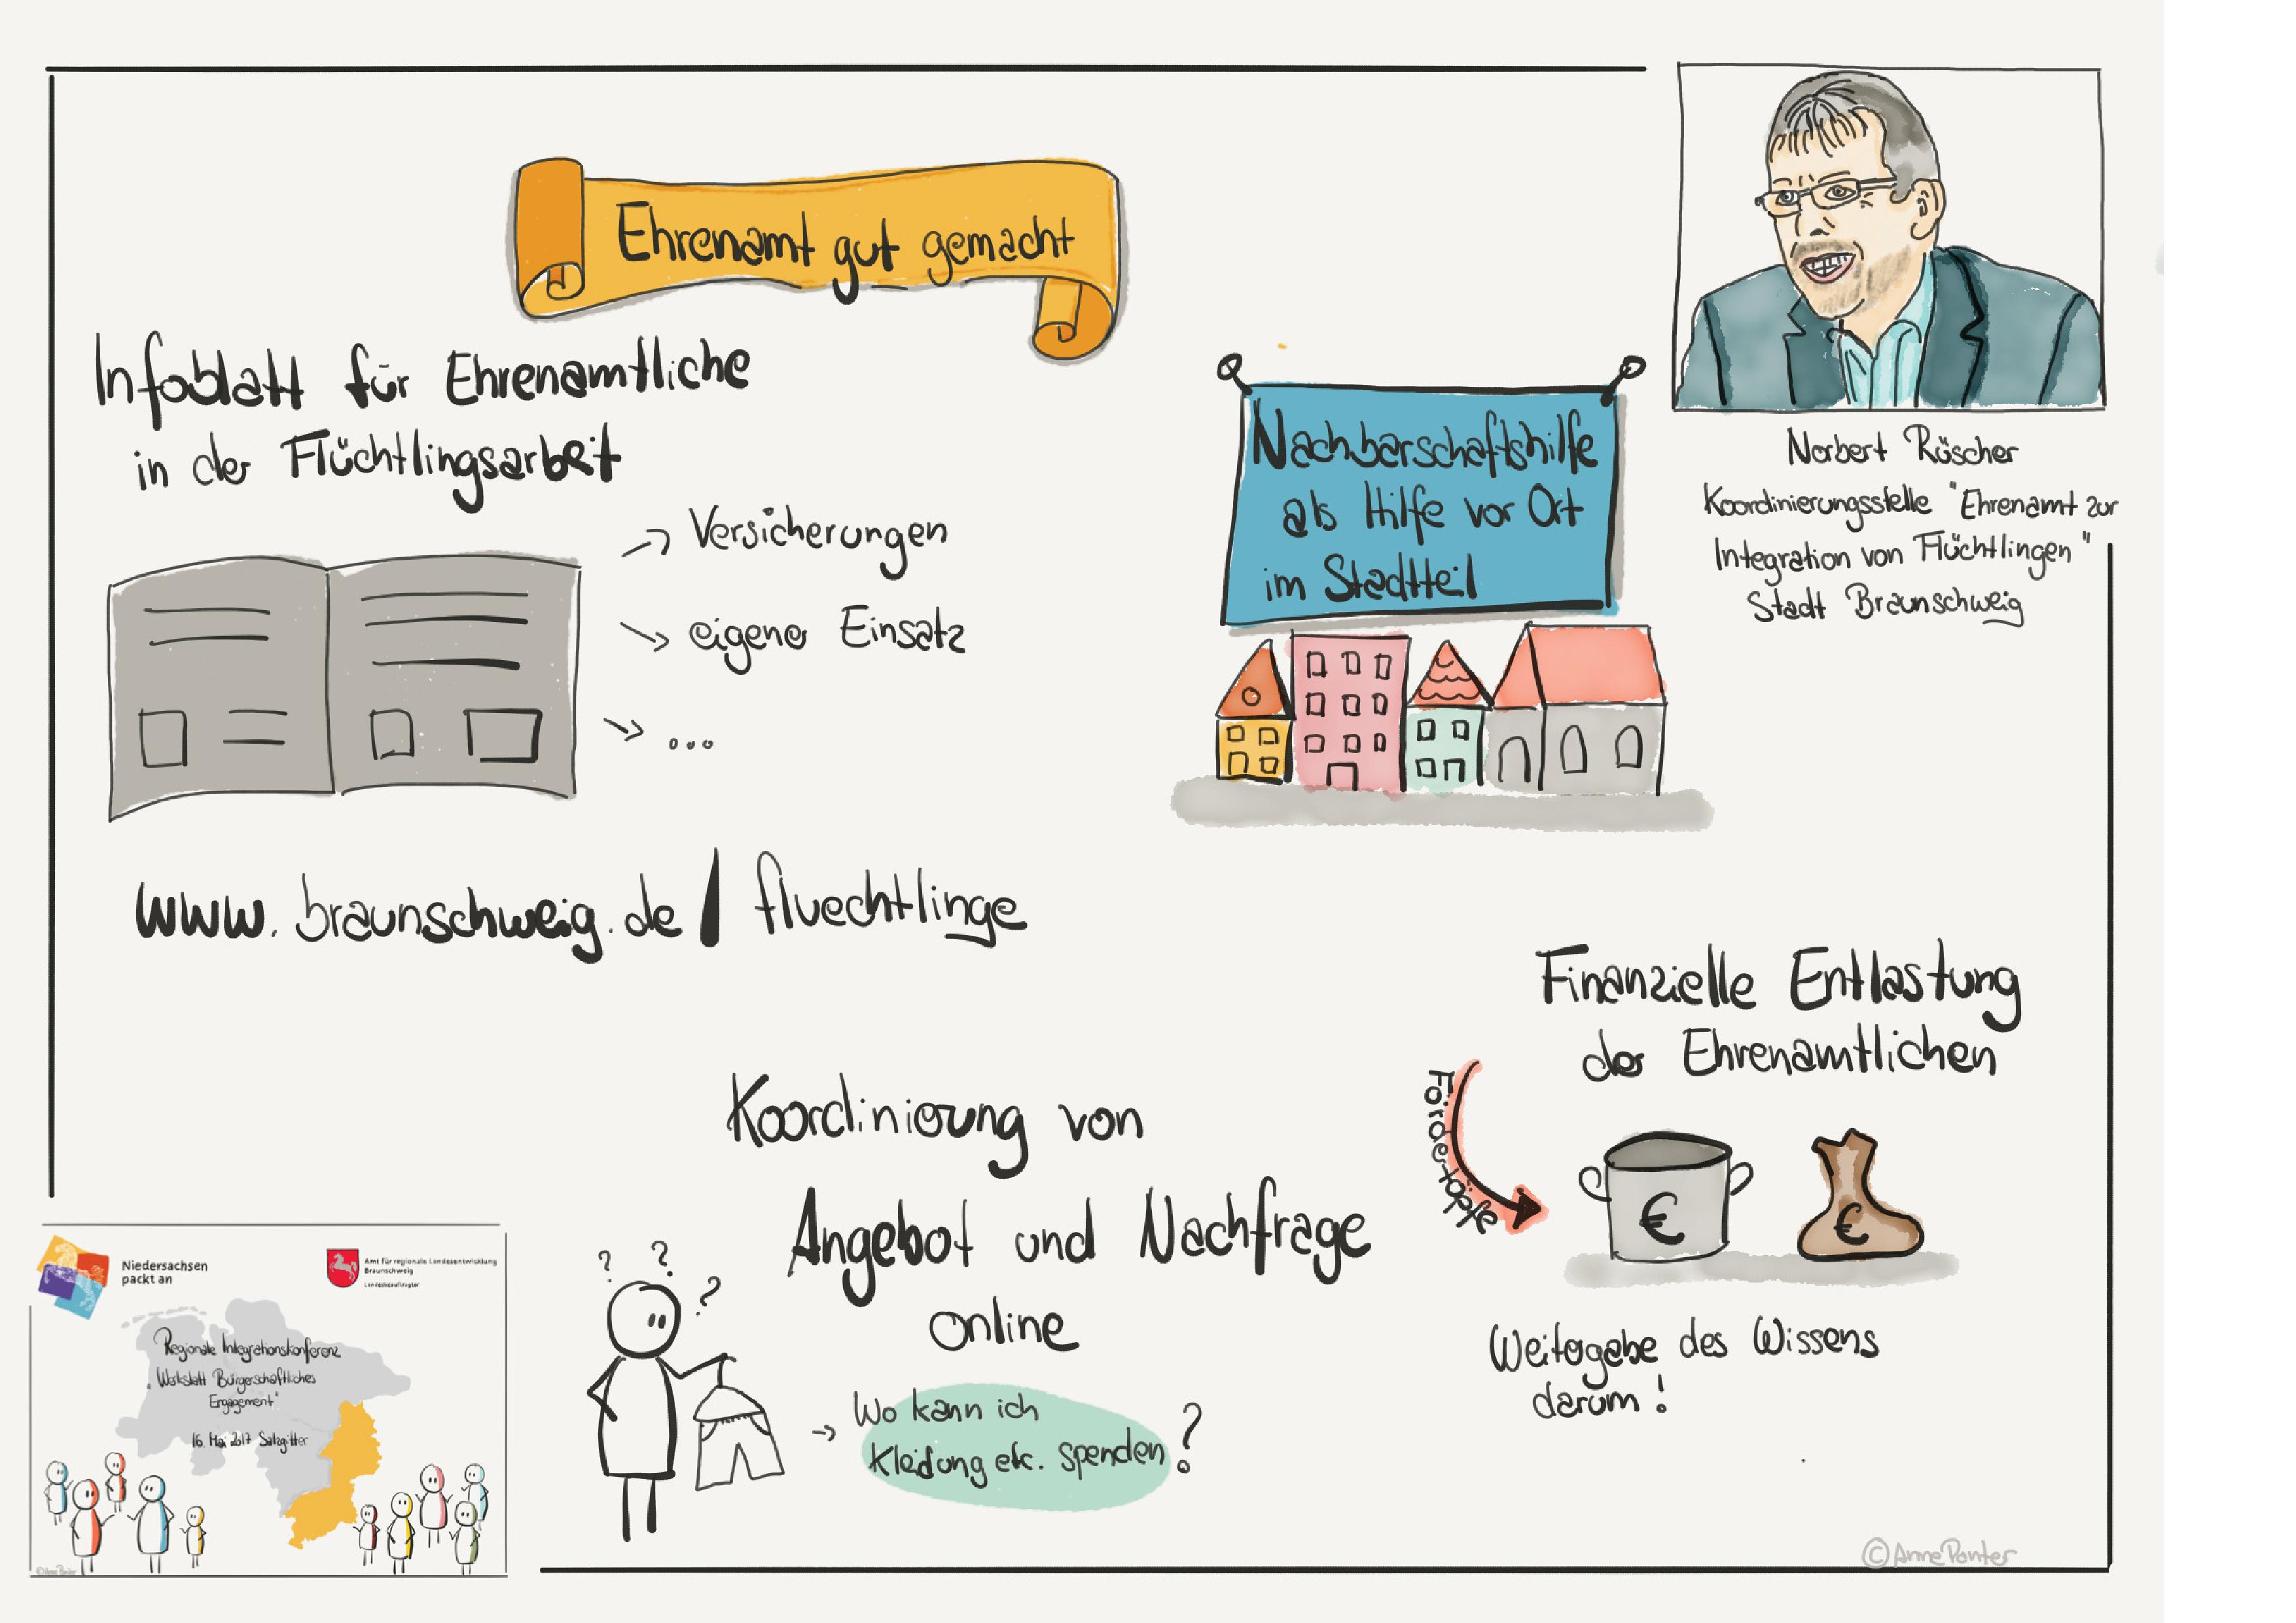 Ehrenamt gut gemacht
Infoblatt für Ehrenamtliche
in der Flüchtlingsarbeit
→ Versicherungen
→ eigener Einsatz
→ ...
www.braunschweig.de/fluechtlinge
Nachbarschaftshilfe
als Hilfe vor Ort
im Stadtteil
Norbert Rüscher
Koordinierungsstelle "Ehrenamt zur
Integration von Flüchtlingen"
Stadt Braunschweig
Finanzielle Entlastung
der Ehrenamtlichen
Fördertöpfe
€
€
Weitergabe des Wissens
darum!
Koordinierung von
Angebot und Nachfrage
online
? ? ?
→ Wo kann ich
Kleidung etc. spenden?
Niedersachsen
packt an
Amt für regionale Landesentwicklung
Braunschweig
Landesbeauftragter
Regionale Integrationskonferenz
"Werkstatt Bürgerschaftliches
Engagement"
16. Mai 2017 Salzgitter
©Anne Ponter